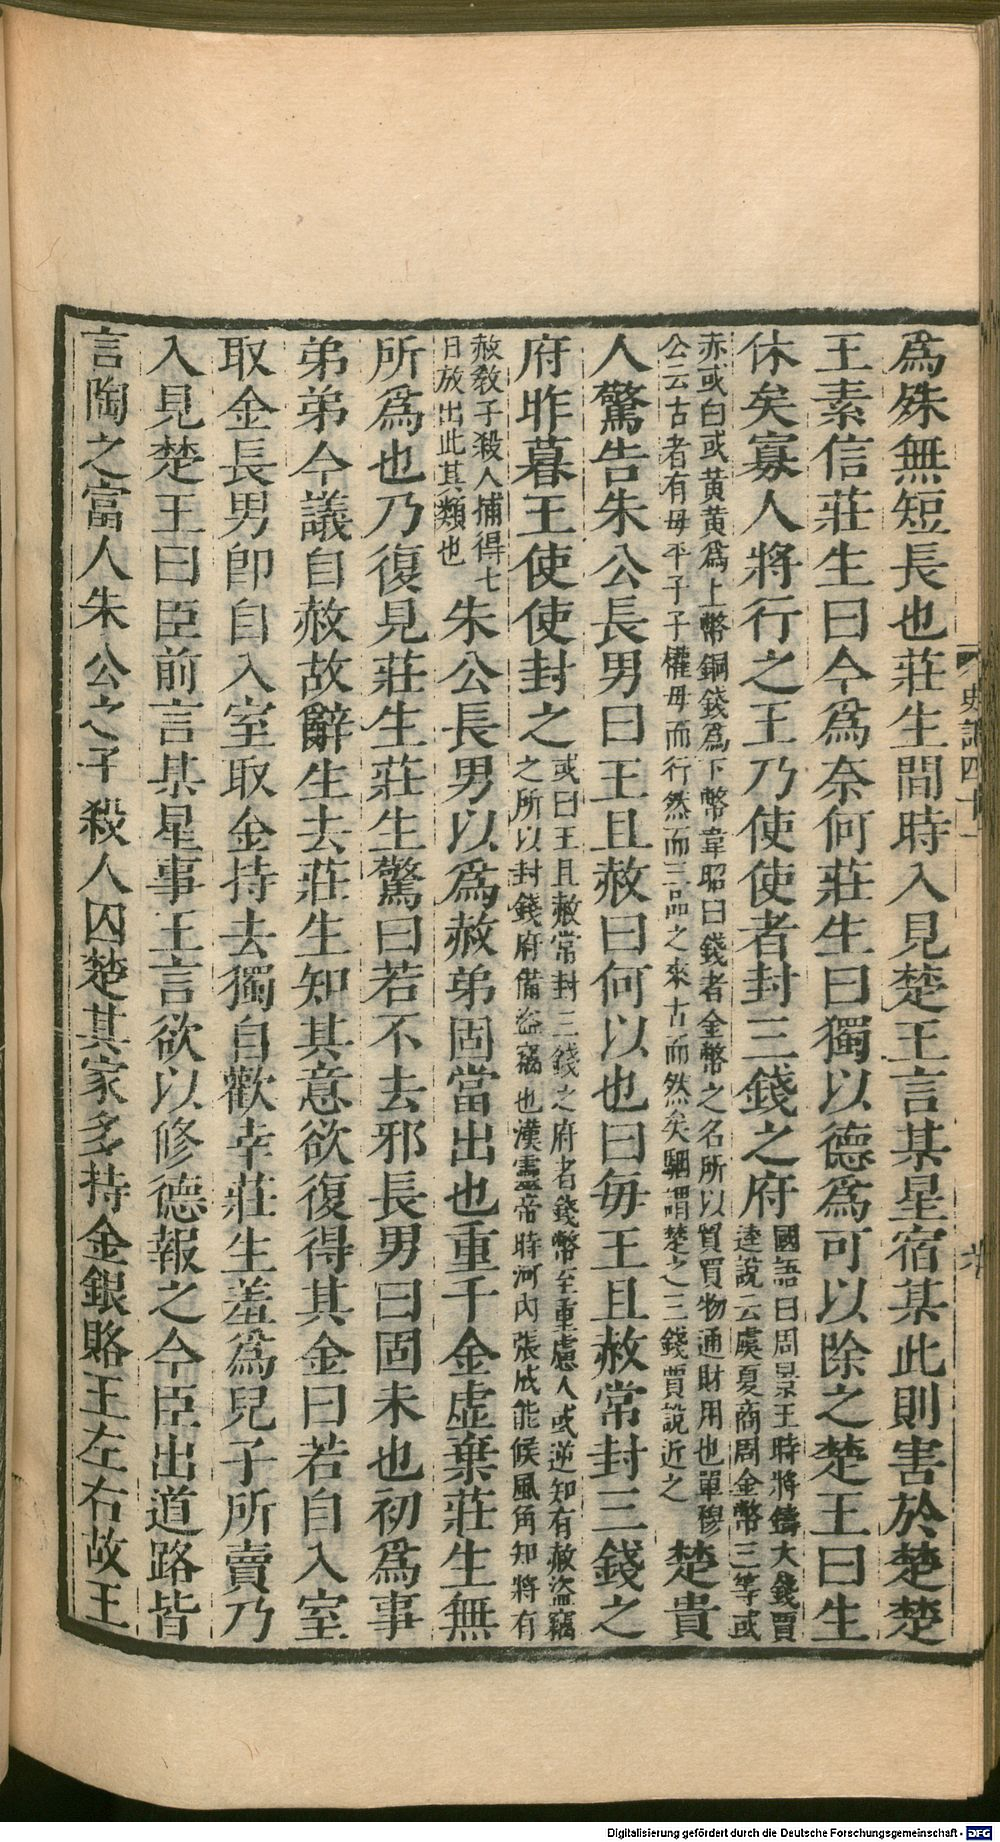 爲殊無短長也莊生間時入見楚王言某星宿某此則害於楚楚
王素信莊生曰今爲柰何莊生曰獨以德爲可以除之楚王曰生
休矣寡人將行之王乃使使者封三錢之府
國語曰周景王時將鑄大錢賈
逵說云虞夏商周金幣三等或
赤或白或黃黃爲上幣銅錢爲下幣韋昭曰錢者金幣之名所以貿買物通財用也單穆
公云古者有母平子子權母而行然而三品之來古而然矣駰謂楚之三錢賈說近之
楚貴
人驚告朱公長男曰王且赦曰何以也曰每王且赦常封三錢之
府昨暮王使使封之
或曰王且赦常封三錢之府者錢幣至重慮人或逆知有赦盜竊
之所以封錢府備盜竊也漢靈帝時河內張成能候風角知將有
赦敎子殺人捕得七
日放出此其類也
朱公長男以爲赦弟固當出也重千金虛棄莊生無
所爲也乃復見莊生莊生驚曰若不去邪長男曰固未也初爲事
弟弟今議自赦故辭生去莊生知其意欲復得其金曰若自入室
取金長男卽自入室取金持去獨自歡幸莊生羞爲兒子所賣乃
入見楚王曰臣前言某星事王言欲以修德報之今臣出道路皆
言陶之富人朱公之子殺人囚楚其家多持金銀賂王左右故王
史記四十一
Digitalisierung gefördert durch die Deutsche Forschungsgemeinschaft - DFG